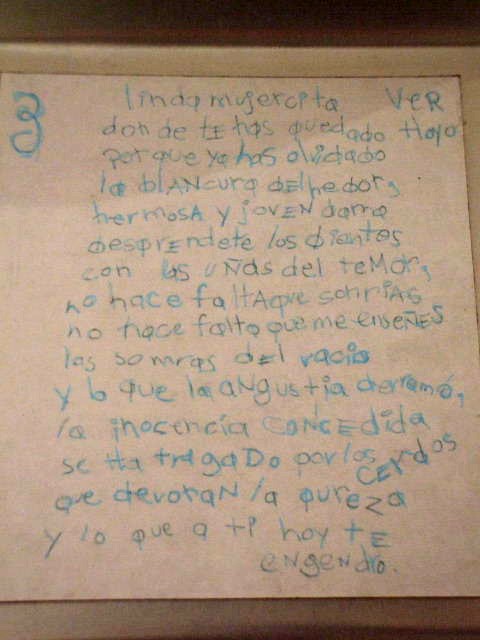 3
linda mujercita VER
donde tE has quedado Hoyo
porque ya has olvidado
la blANcura dElhedor,
hermosA y jovEN dama
desprENdete los diantes
con las uÑas del teMor,
no hace faltAque sonriAs
no hace falta que me enseÑES
las somras dEl racio
y lo que la aNgustia derramó,
la inocencía CONCEdida
se Ha tragaDo por los cerdos
que devoraN la purEza
y lo que a ti hoy tE
eNgeNdro.